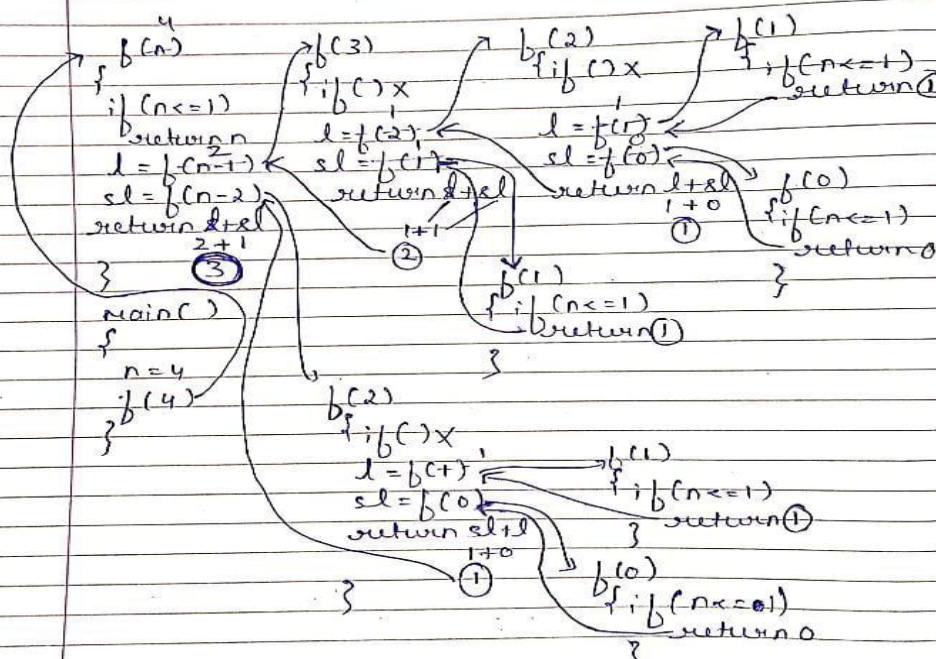 4
f(n)
{
if(n<=1)
return n
2
l = f(n-1)
sl = f(n-2)
return l+sl
2+1
3
}
main()
{
n=4
f(4)
}
f(3)
{ if() x
1
l = f(2)
1
sl = f(1)
return l+sl
1+1
2
f(2)
{ if() x
1
l = f(1)
0
sl = f(0)
return l+sl
1+0
1
f(1)
{ if(n<=1)
return 1
f(0)
{ if(n<=1)
return 0
}
f(1)
{ if(n<=1)
return 1
}
f(2)
{ if() x
1
l = f(1)
sl = f(0)
return sl+l
1+0
1
}
f(1)
{ if(n<=1)
return 1
}
f(0)
{ if(n<=1)
return 0
}